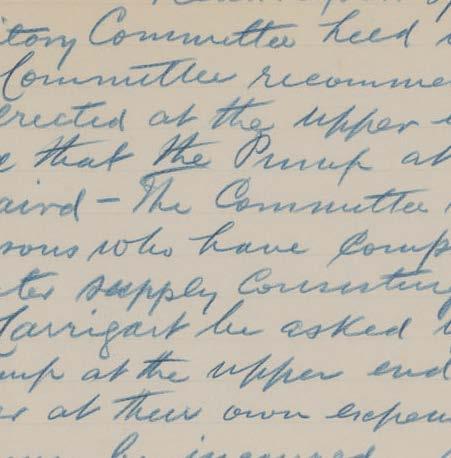 itary Committee heed
Committee recomme
erected at the upper
that the Pump at
aird - The Committee
sons who have comp
ter supply Consisting
Carrigart be asked
mp at the upper end
at their own expen
be incurred